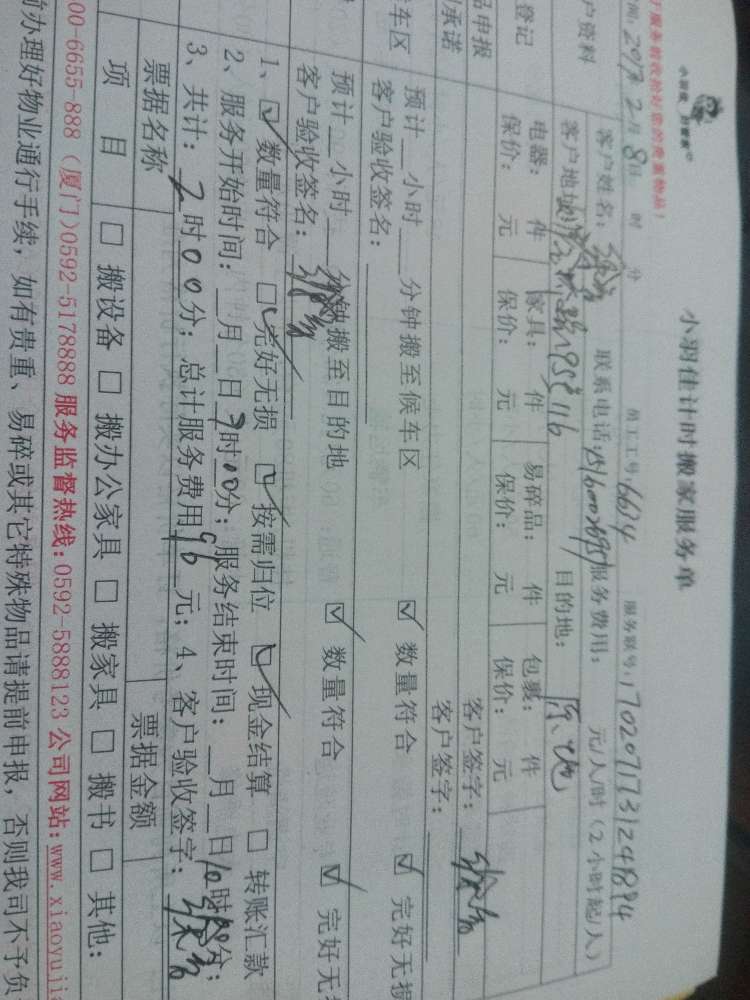 小羽佳计时搬家服务单
小羽佳 好管家
服务前请收拾好您的贵重物品!
员工工号: 6634 服务联号: 1702071731241894
时间: 2017年 2月 8日 时 分
户资料
客户姓名: 联系电话: 服务费用: 元/人/时(2小时起/人)
客户地址: 目的地: 原地
登记
电器: 件 家具: 件 易碎品: 件 包裹: 件
保价: 元 保价: 元 保价: 元 保价: 元
品申报
客户签字:
承诺
客户签字:
车区
预计__小时___分钟搬至候车区 ☑ 数量符合 ☑ 完好无损
客户验收签名:
预计__小时___分钟搬至目的地 ☑ 数量符合 ☑ 完好无
客户验收签名:
1、☑ 数量符合 ☑ 完好无损 ☑ 按需归位 ☑ 现金结算 □ 转账汇款
2、服务开始时间:__月__日 时00分; 服务结束时间:__月__日10时 分;
3、共计: 2时00分; 总计服务费用 96 元; 4、客户验收签字:
票据名称 票据金额
项目 □ 搬设备 □ 搬办公家具 □ 搬家具 □ 搬书 □ 其他:
00-6655-888 (厦门)0592-5178888 服务监督热线:0592-5888123 公司网站:www.xiaoyujia
前办理好物业通行手续, 如有贵重、易碎或其它特殊物品请提前申报, 否则我司不予负